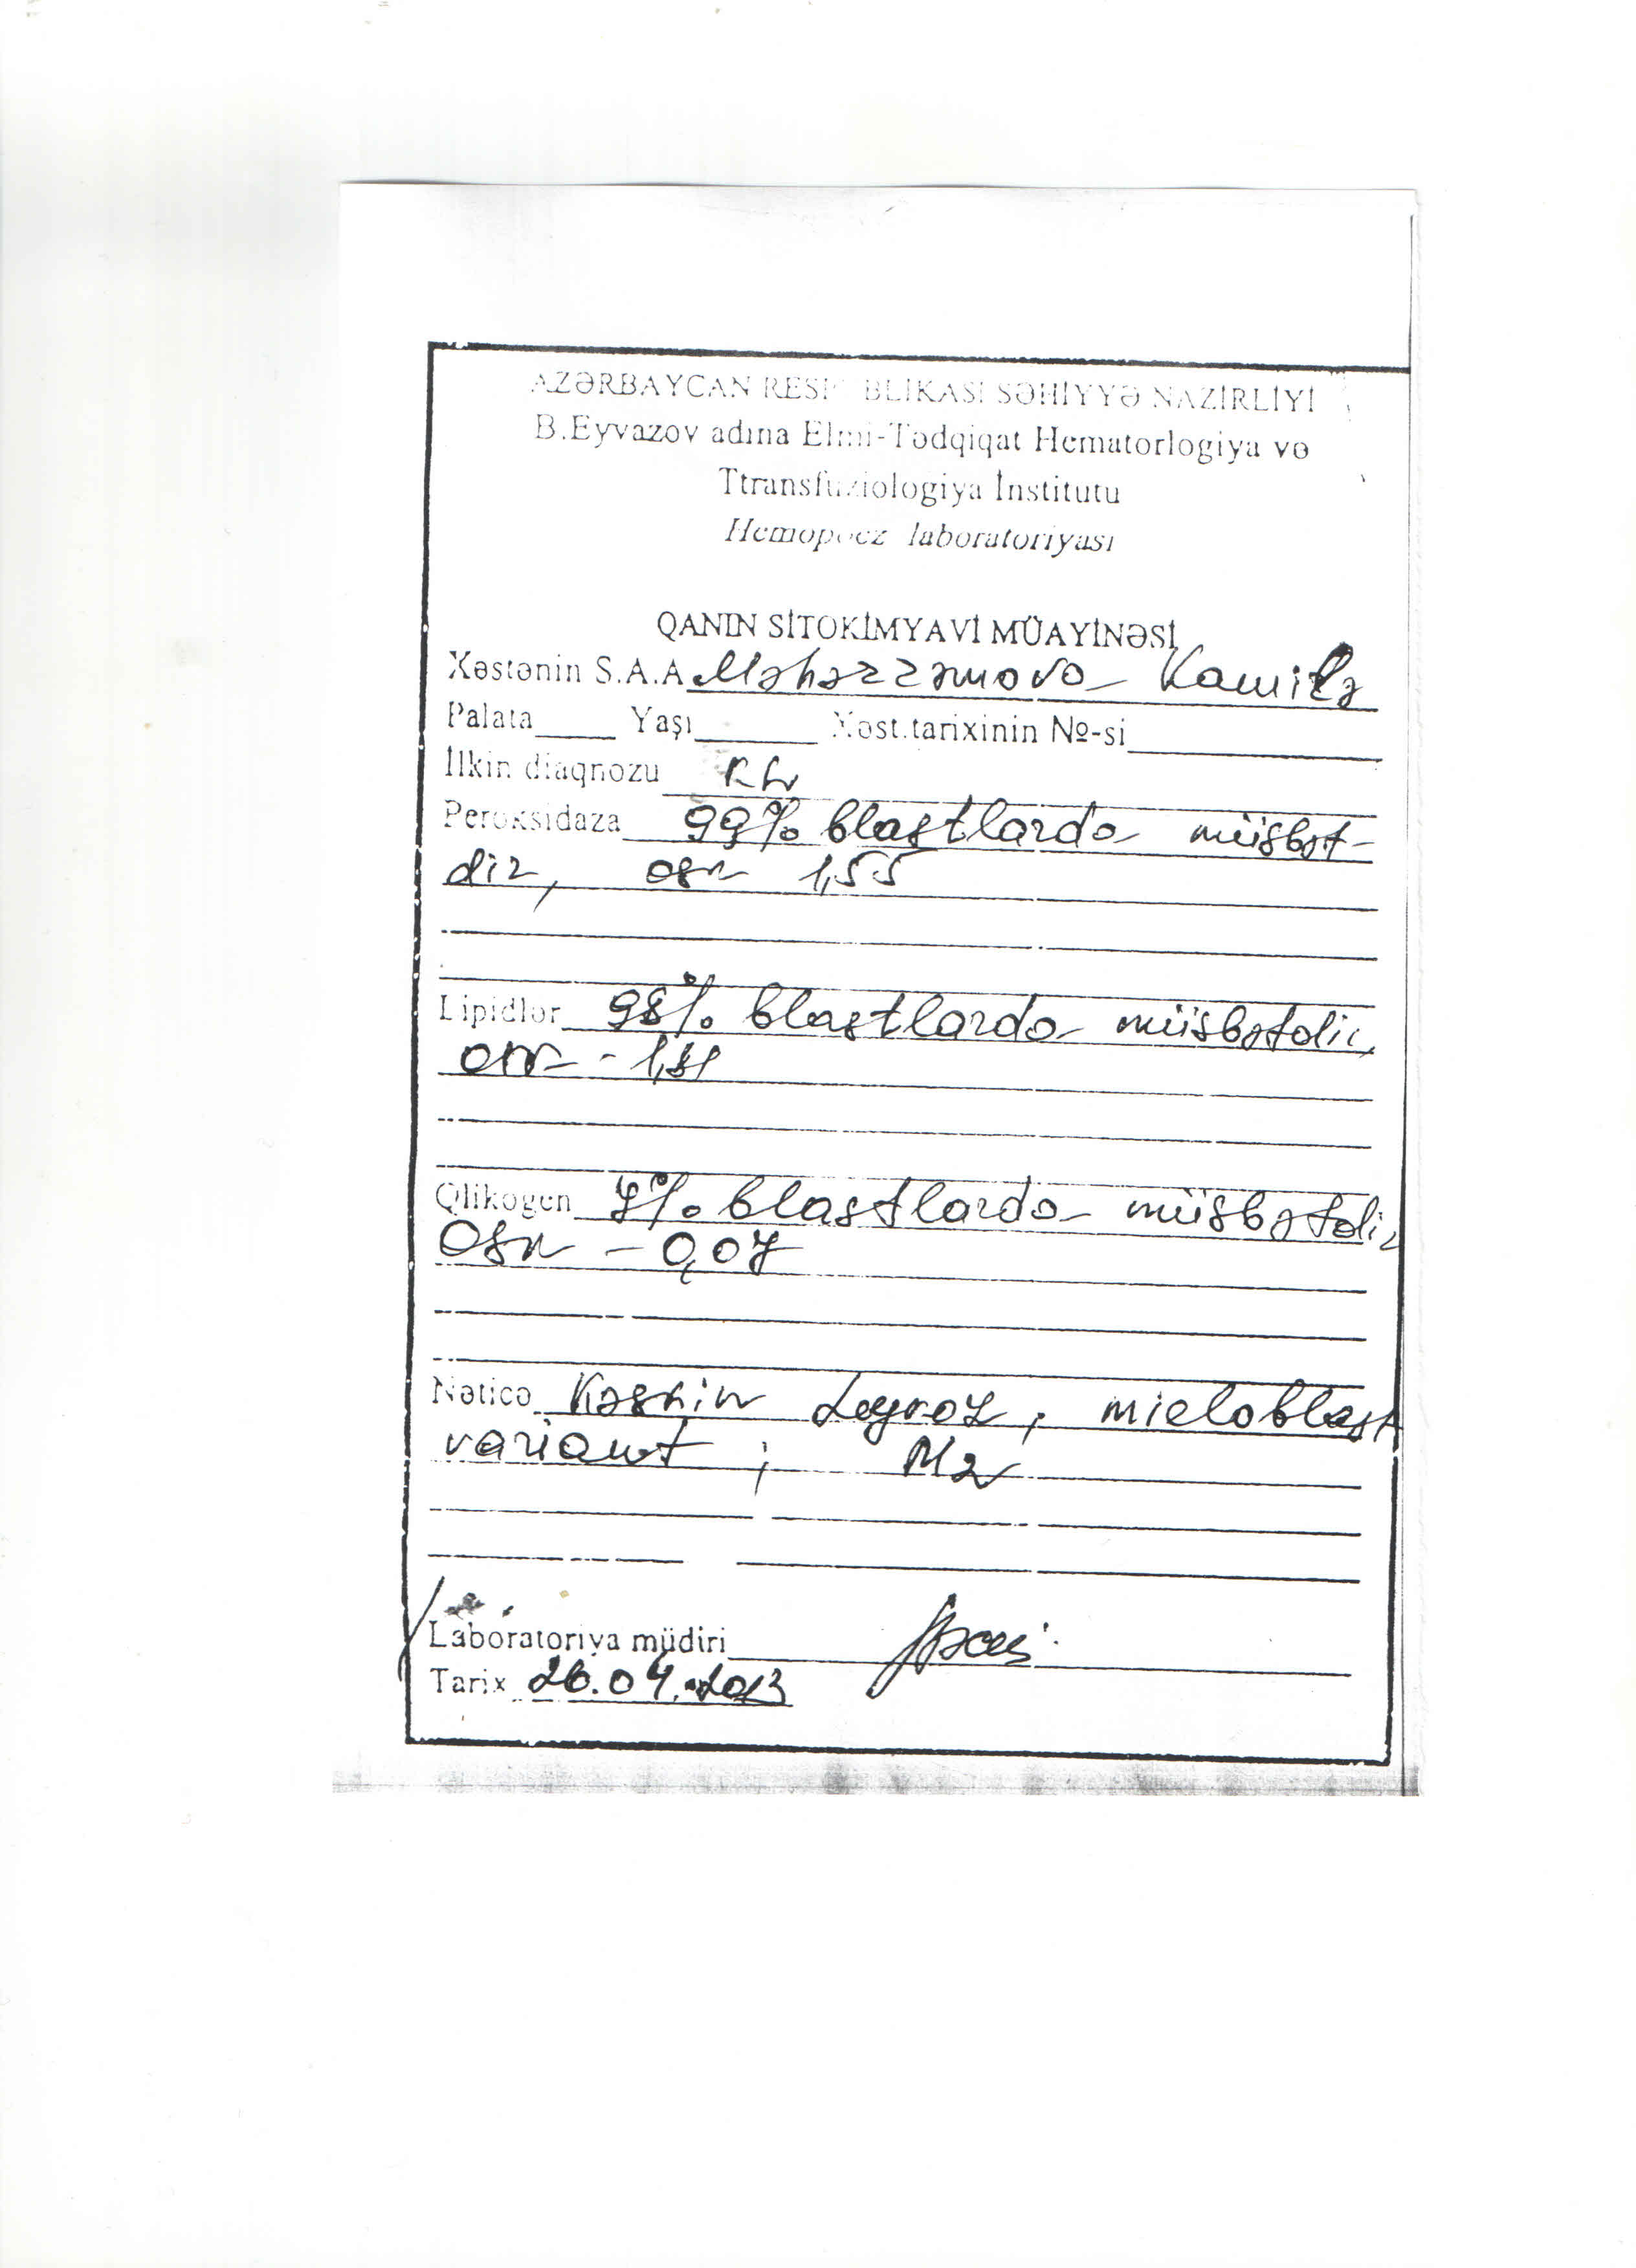 AZƏRBAYCAN RESPUBLİKASI SƏHİYYƏ NAZİRLİYİ
B.Eyvazov adına Elmi-Tədqiqat Hematorlogiya və
Ttransfuziologiya İnstitutu
Hemopoez laboratoriyası
QANIN SİTOKİMYAVİ MÜAYİNƏSİ
Xəstənin S.A.A Məhərrəmova Kamilə
Palata____ Yaşı______ Xəst.tarixinin №-si
İlkin diaqnozu KL
Peroksidaza 99% blastlarda müsbət-
dir, OSK 1,55
Lipidlər 98% blastlarda müsbətdir,
Qlikogen 7% blastlarda müsbətdir
OSK - 0,07
Nəticə Kəskin Leykoz, mieloblast
variant; M2
Laboratoriya müdiri
Tarix 26.04.2013